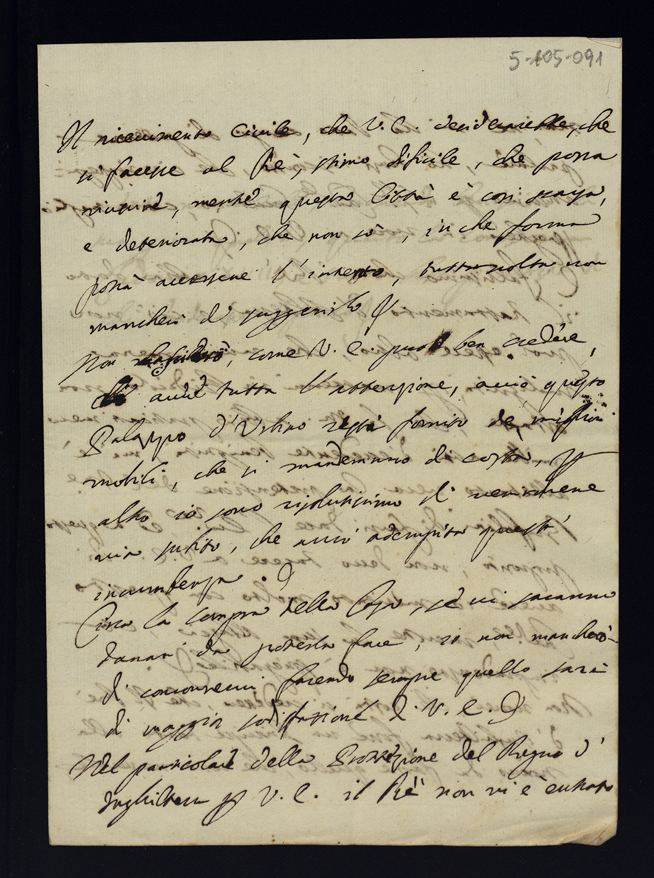 5-105-091
Il ricevimento Civile, che V. E. desiderarebbe, che
si facesse al Rè, stimo dificile, che possa
riuscire, mentre questa Città è così scarsa,
e deteriorata, che non sò, in che forma
possa aversene l'intento, tuttavolta non
mancherò di suggerirlo
Non, come V. E. può ben credere,
avere tutta l'attenzione, acciò questo
Palazzo d'Urbino resti fornito de, migliori
mobili, che si manderanno di costà, p
altro io sono risolutissimo di venirmene
via subito, che avrò adempita questa
incumbenza.
Circa la Compra della Casa, se vi saranno
danari da poterla fare, io non mancherò
di concorrervi facendo sempre quello sarà
di maggior sodisfazione di V. E.
Nel particolare della Protezione del Regno d'
Inghilterra p V. E. il Rè non vi è entrato